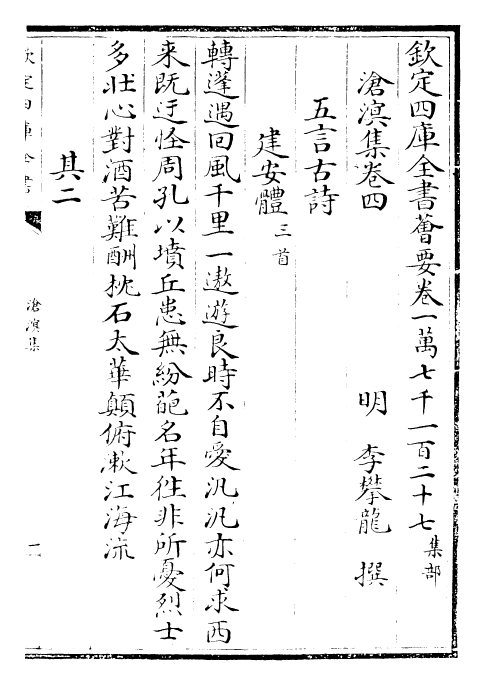 欽定四庫全書薈要卷一萬七千一百二十七集部
滄溟集卷四
明 李攀龍 撰
五言古詩
建安體三首
轉蓬遇回風千里一遨遊良時不自愛汎汎亦何求西
来既迂怪周孔以墳丘患無紛葩名年徃非所憂烈士
多壯心對酒苦難酬枕石太華顛俯漱江海流
其二
欽定四庫全書
滄溟集
一